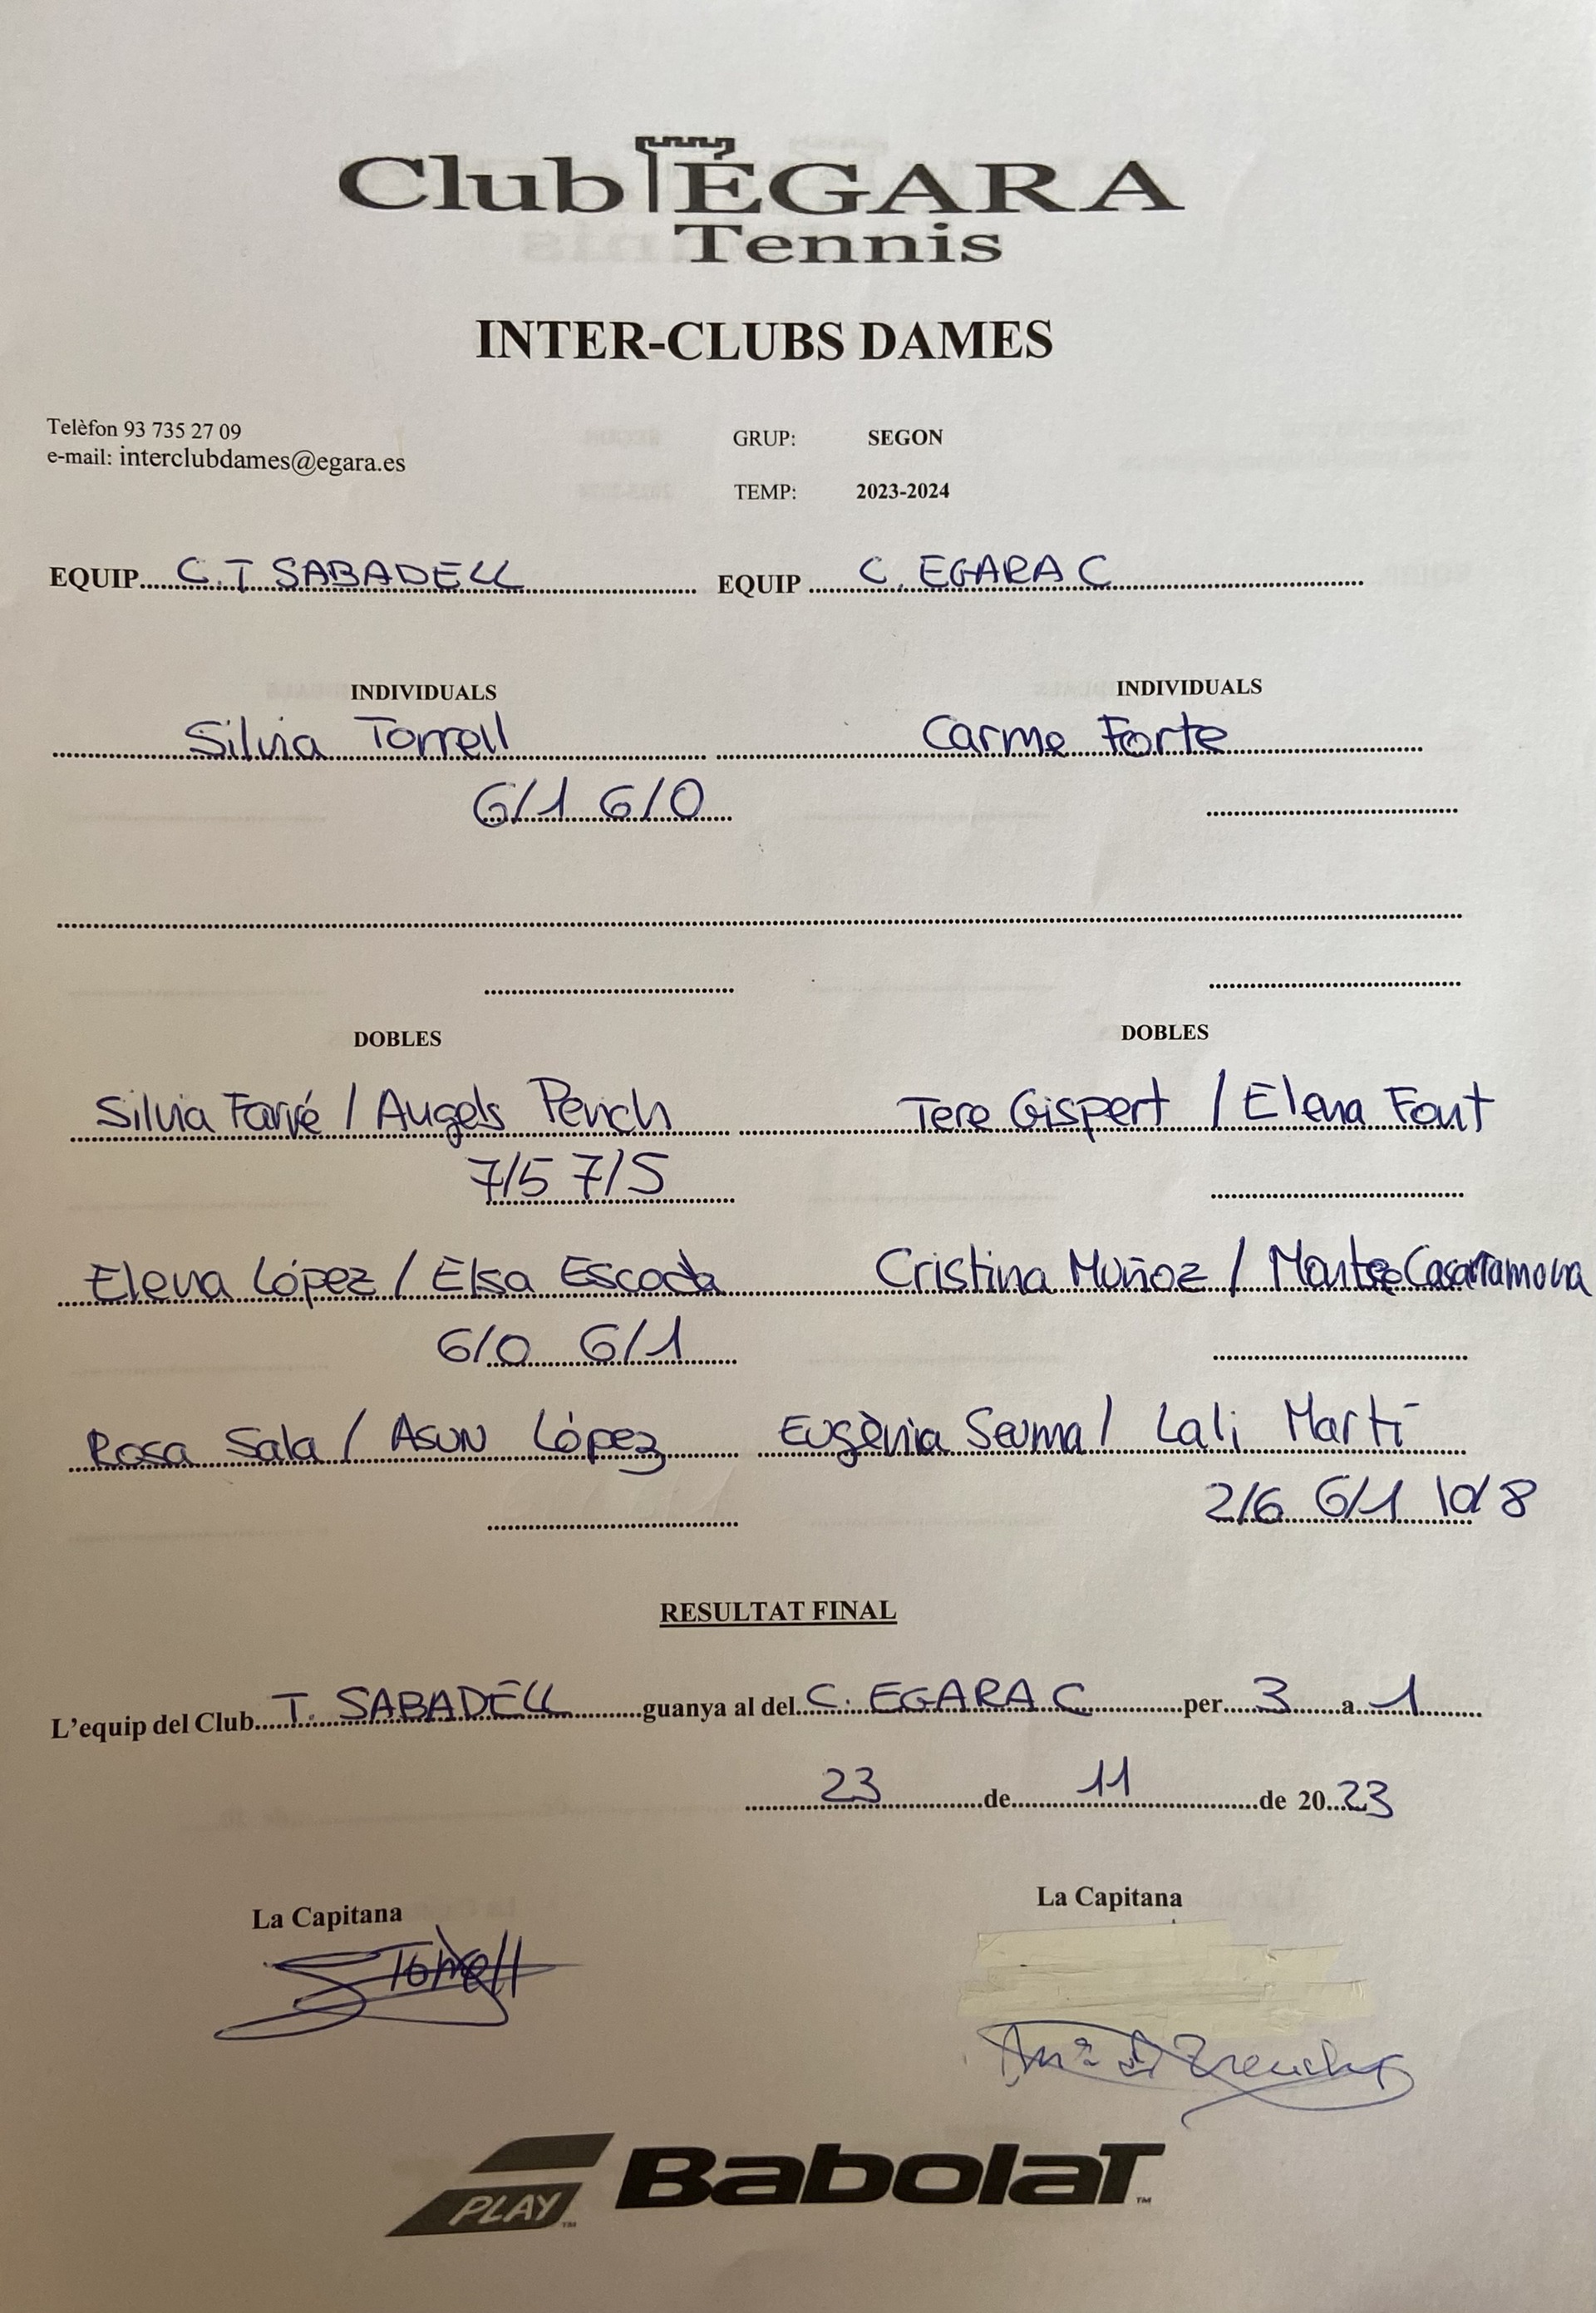 Club EGARA
Tennis
INTER-CLUBS DAMES
Telèfon 93 735 27 09
e-mail: interclubdames@egara.es
GRUP: SEGON
TEMP: 2023-2024
EQUIP C.T SABADELL EQUIP C. EGARA C
INDIVIDUALS INDIVIDUALS
Silvia Torrell Carme Forte
6/1 6/0
DOBLES DOBLES
Silvia Farré / Angels Perich Tere Gispert / Elena Font
7/5 7/5
Elena López / Elsa Escoda Cristina Muñoz / Montse Casarramona
6/0 6/1
Rosa Sala / Asun López Eugènia Seuma / Lali Martí
2/6 6/1 10/8
RESULTAT FINAL
L'equip del Club T. SABADELL guanya al del C. EGARA C per 3 a 1
23 de 11 de 2023
La Capitana La Capitana
STorrell
PLAY™ BabolaT™